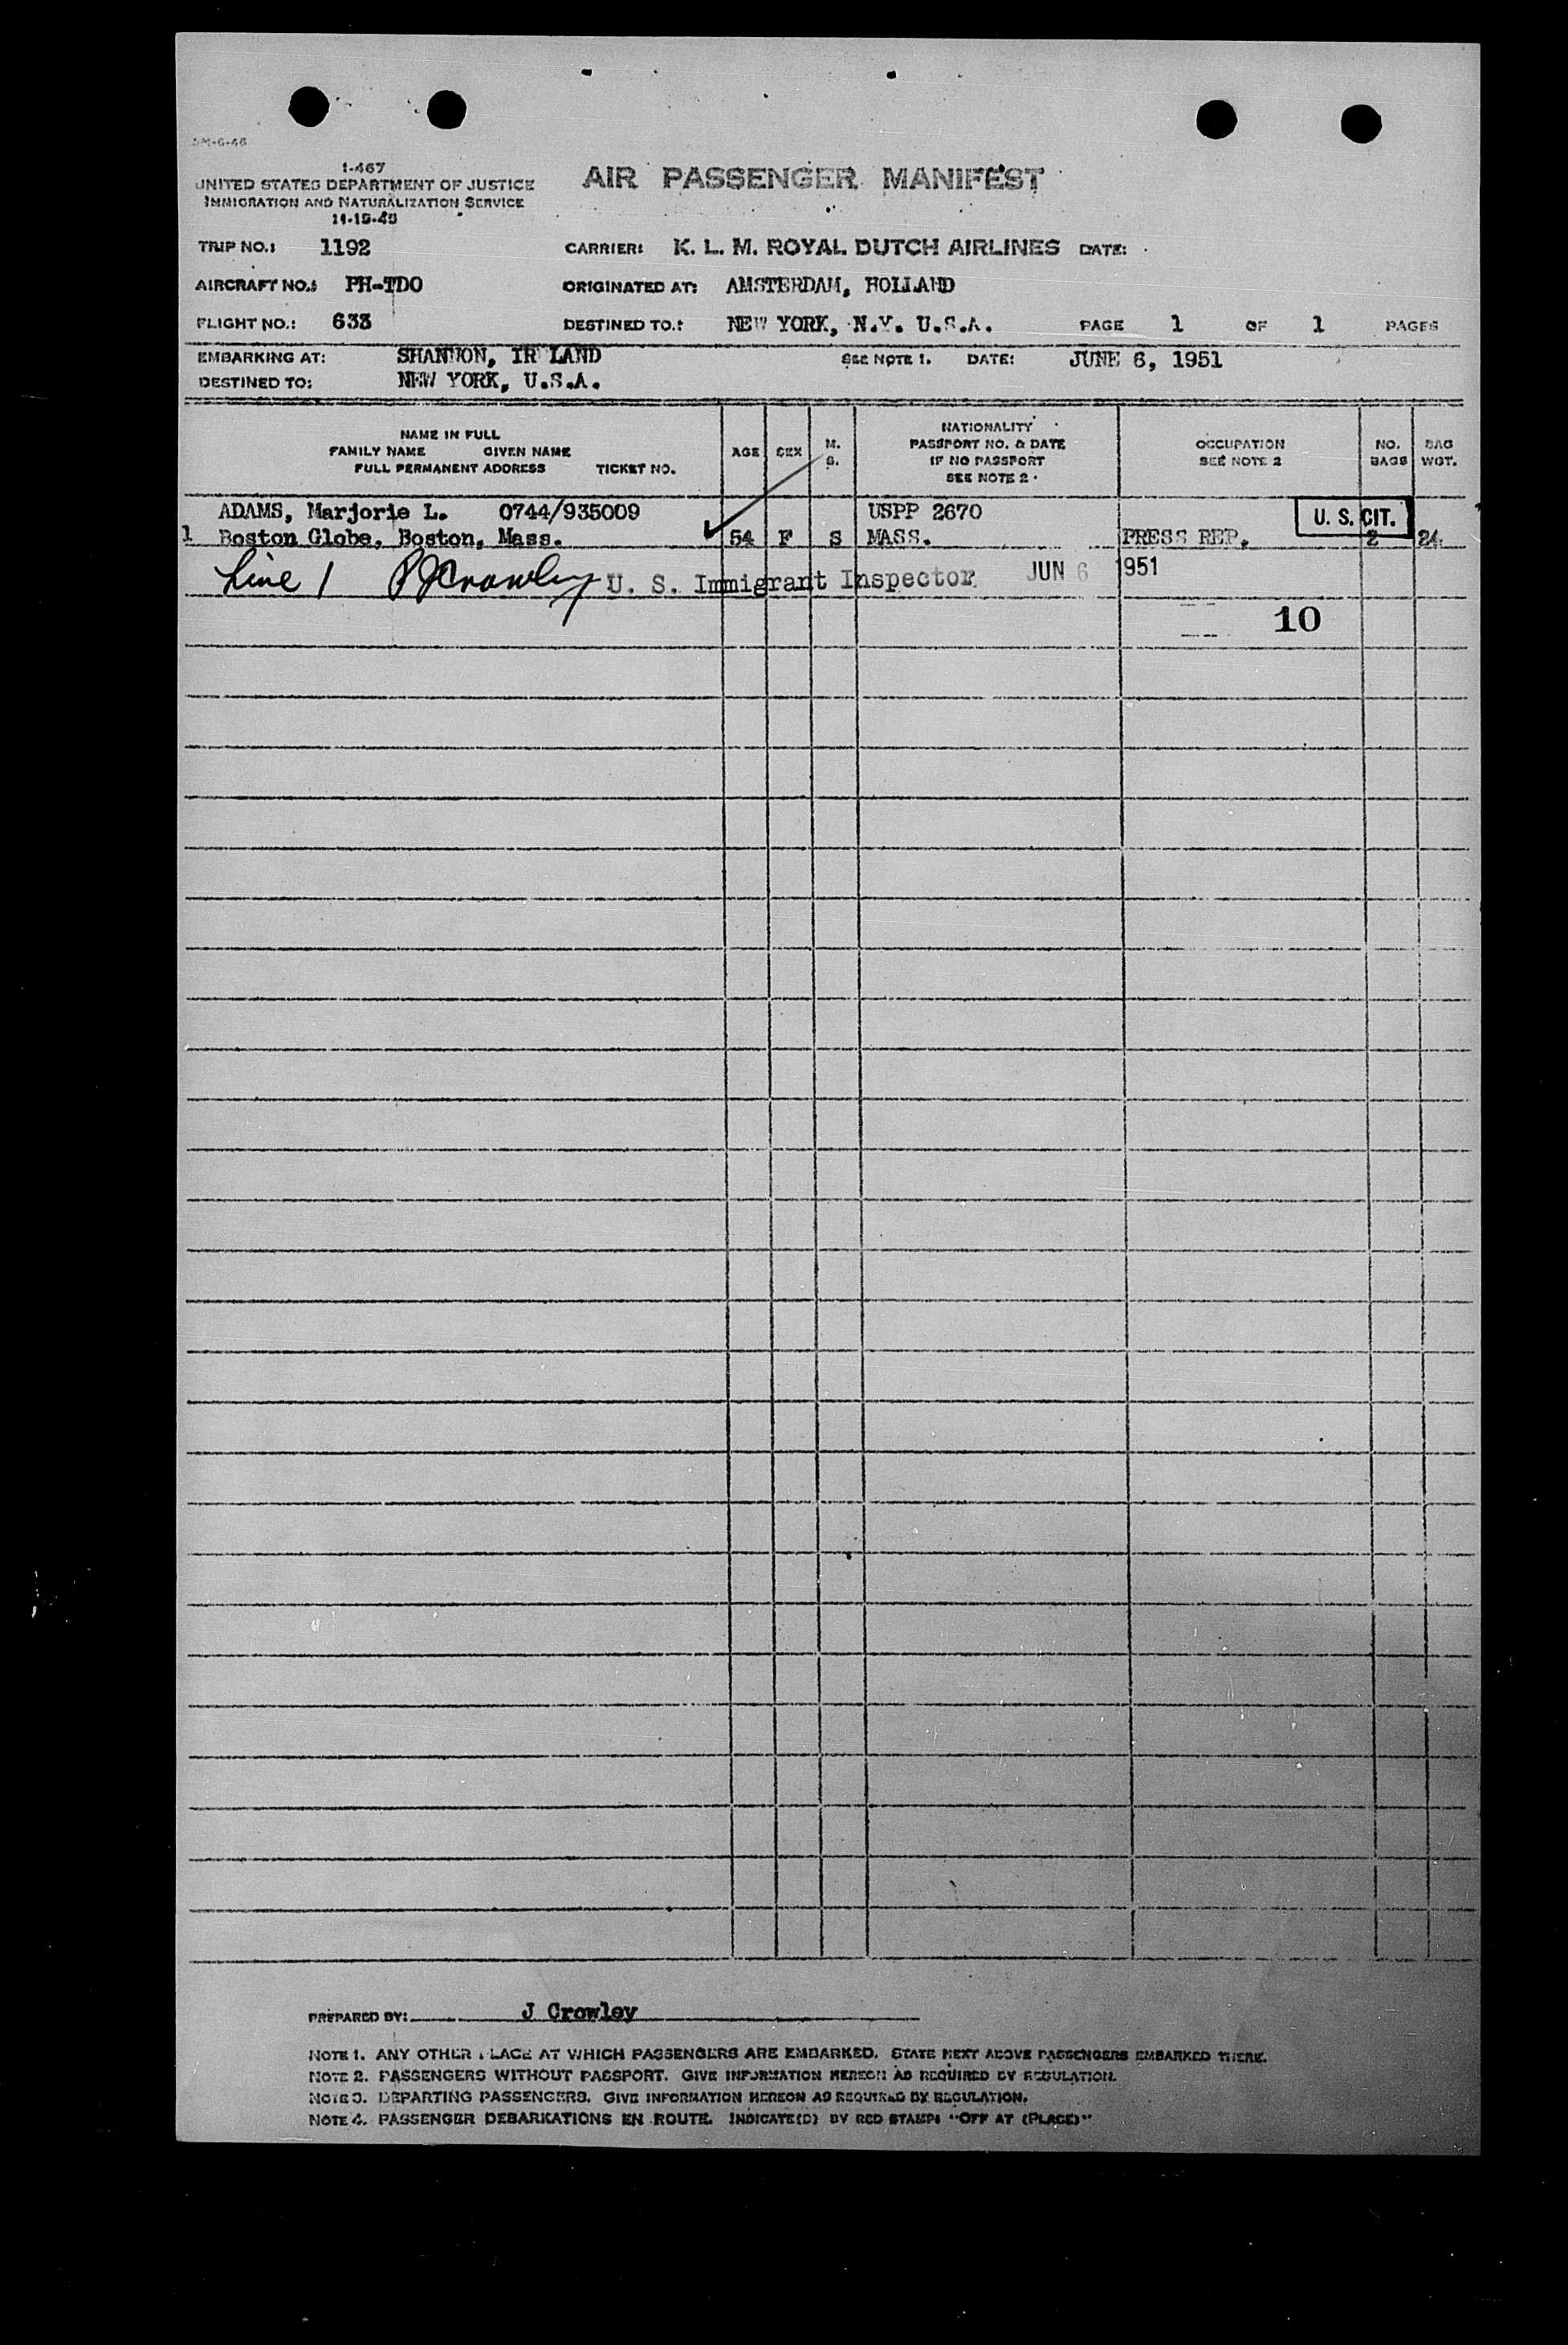 1-467
UNITED STATES DEPARTMENT OF JUSTICE
IMMIGRATION AND NATURALIZATION SERVICE
AIR PASSENGER MANIFEST
TRIP NO.: 1192 CARRIER: K. L. M. ROYAL DUTCH AIRLINES DATE:
AIRCRAFT NO.: PH-TDO ORIGINATED AT: AMSTERDAM, HOLLAND
FLIGHT NO.: 633 DESTINED TO.: NEW YORK, N.Y. U.S.A. PAGE 1 OF 1 PAGES
EMBARKING AT: SHANNON, IR LAND SEE NOTE 1. DATE: JUNE 6, 1951
DESTINED TO: NEW YORK, U.S.A.
NAME IN FULL
FAMILY NAME GIVEN NAME
FULL PERMANENT ADDRESS TICKET NO.
AGE
SEX
M. S.
NATIONALITY
PASSPORT NO. & DATE
IF NO PASSPORT
SEE NOTE 2
OCCUPATION
SEE NOTE 2
NO. BAGS
BAG WGT.
ADAMS, Marjorie L. 0744/935009 USPP 2670 U. S. CIT.
1 Boston Globe, Boston, Mass. 54 F S MASS. PRESS REP. 2 24
Line 1 Crowley U. S. Immigrant Inspector JUN 6 1951
10
PREPARED BY: J Crowley
NOTE 1. ANY OTHER PLACE AT WHICH PASSENGERS ARE EMBARKED. STATE NEXT ABOVE PASSENGERS EMBARKED THERE.
NOTE 2. PASSENGERS WITHOUT PASSPORT. GIVE INFORMATION HEREON AS REQUIRED BY REGULATION.
NOTE 3. DEPARTING PASSENGERS. GIVE INFORMATION HEREON AS REQUIRED BY REGULATION.
NOTE 4. PASSENGER DEBARKATIONS EN ROUTE. INDICATE(D) BY RED STAMP: "OFF AT (PLACE)"